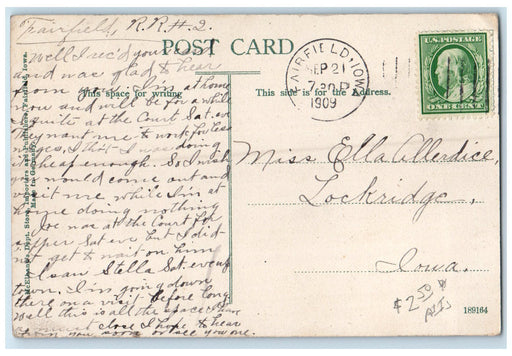 Fairfield, R.R.#2.
Well I rec'd your card
and was glad to hear
from you. I'm at home
now and will be for a while
I quite at the Court Sat. eve
They want me to work for less
wages, I thot I was doing
it cheap enough. So I wish
you would come out and
visit me while I'm at
home doing nothing
Joe was at the Court for
supper Sat eve but I did
not get to wait on him
I saw Stella Sat. eve up
town, I'm going down
there on a visit before long
Well this is all the space I have
must close I hope to hear
from you soon or see you one.
POST CARD
This space for writing
This side is for the Address.
FAIRFIELD-IOWA
SEP 21
7-30P
1909
U.S. POSTAGE
ONE CENT
Miss Ella Allerdice,
Lockridge,
Iowa.
$2.50
189164
Made in Germany.